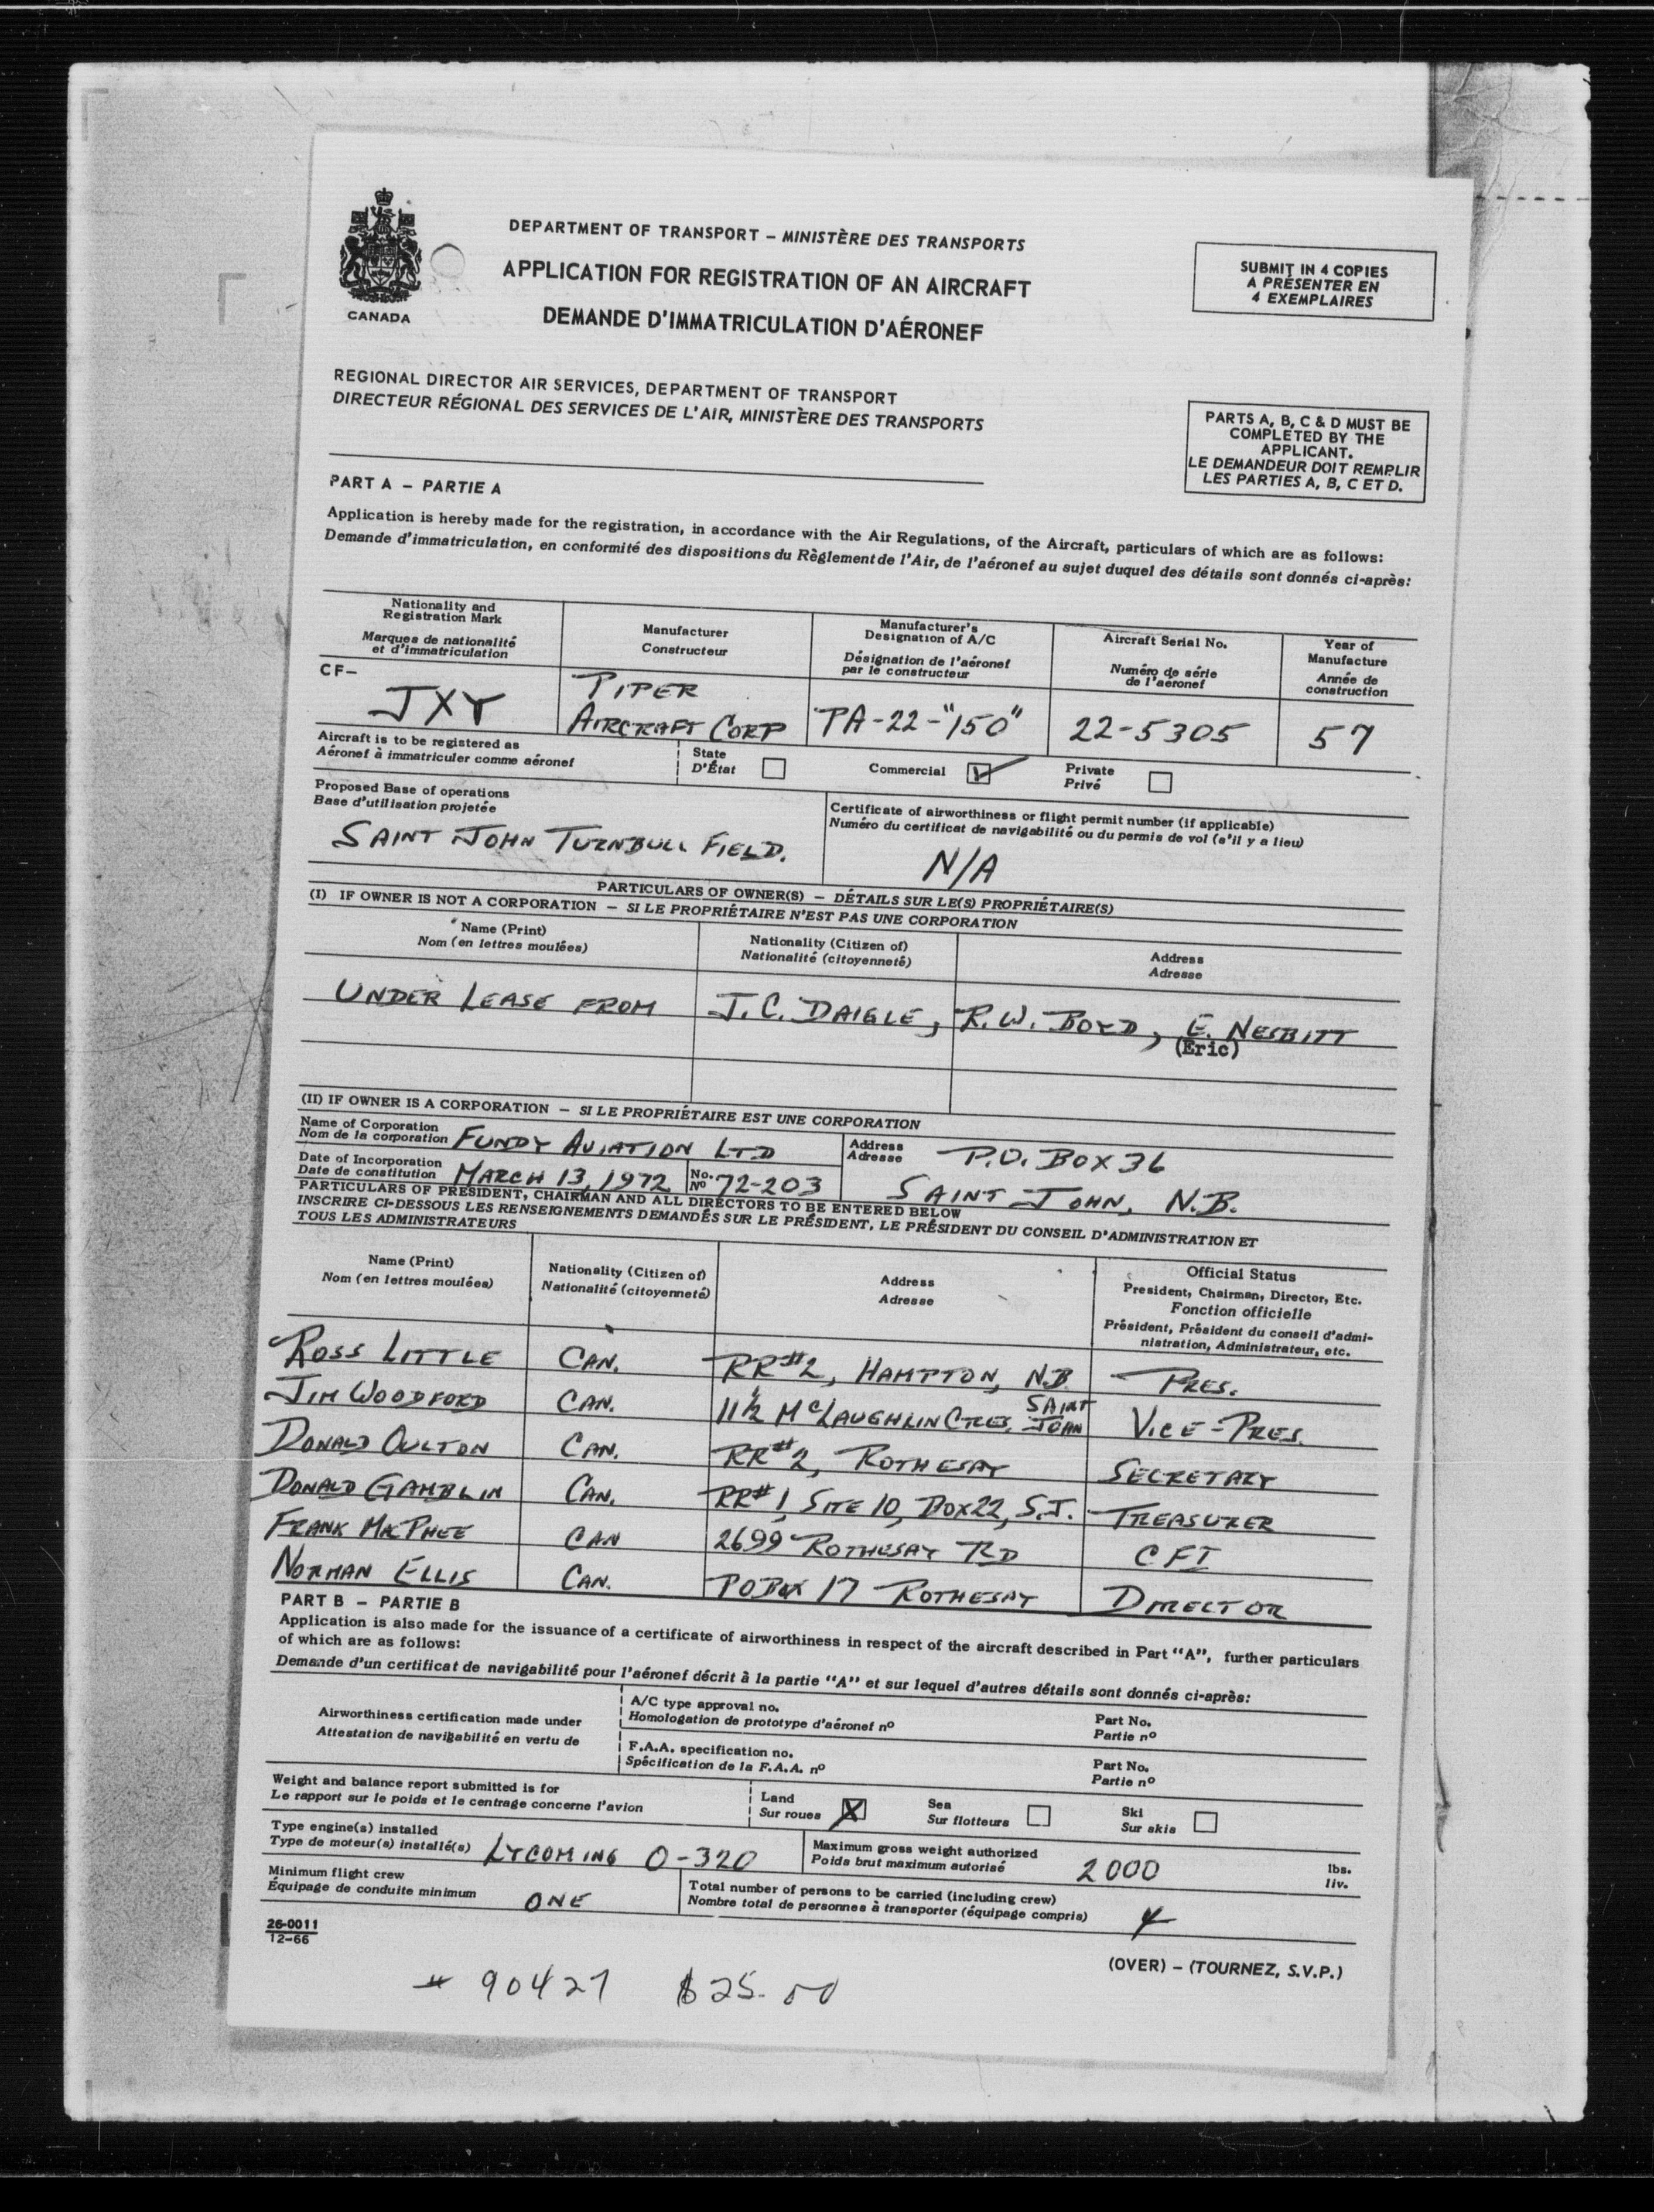 CANADA
DEPARTMENT OF TRANSPORT – MINISTÈRE DES TRANSPORTS
APPLICATION FOR REGISTRATION OF AN AIRCRAFT
DEMANDE D'IMMATRICULATION D'AÉRONEF
SUBMIT IN 4 COPIES
A PRÉSENTER EN
4 EXEMPLAIRES
REGIONAL DIRECTOR AIR SERVICES, DEPARTMENT OF TRANSPORT
DIRECTEUR RÉGIONAL DES SERVICES DE L'AIR, MINISTÈRE DES TRANSPORTS
PARTS A, B, C & D MUST BE
COMPLETED BY THE
APPLICANT.
LE DEMANDEUR DOIT REMPLIR
LES PARTIES A, B, C ET D.
PART A – PARTIE A
Application is hereby made for the registration, in accordance with the Air Regulations, of the Aircraft, particulars of which are as follows:
Demande d'immatriculation, en conformité des dispositions du Règlement de l'Air, de l'aéronef au sujet duquel des détails sont donnés ci-après:
Nationality and
Registration Mark
Marques de nationalité
et d'immatriculation
Manufacturer
Constructeur
Manufacturer's
Designation of A/C
Désignation de l'aéronef
par le constructeur
Aircraft Serial No.
Numéro de série
de l'aéronef
Year of
Manufacture
Année de
construction
CF–
JXY
PIPER
AIRCRAFT CORP
PA-22-"150"
22-5305
57
Aircraft is to be registered as
Aéronef à immatriculer comme aéronef
State
D'État
Commercial
Private
Privé
Proposed Base of operations
Base d'utilisation projetée
SAINT JOHN TURNBULL FIELD.
Certificate of airworthiness or flight permit number (if applicable)
Numéro du certificat de navigabilité ou du permis de vol (s'il y a lieu)
N/A
PARTICULARS OF OWNER(S) – DÉTAILS SUR LE(S) PROPRIÉTAIRE(S)
(I) IF OWNER IS NOT A CORPORATION – SI LE PROPRIÉTAIRE N'EST PAS UNE CORPORATION
Name (Print)
Nom (en lettres moulées)
Nationality (Citizen of)
Nationalité (citoyenneté)
Address
Adresse
UNDER LEASE FROM J.C. DAIGLE, R.W. BOYD, E. NESBITT
(Eric)
(II) IF OWNER IS A CORPORATION – SI LE PROPRIÉTAIRE EST UNE CORPORATION
Name of Corporation
Nom de la corporation FUNDY AVIATION LTD
Address
Adresse
P.O. BOX 36
SAINT JOHN, N.B.
Date of Incorporation
Date de constitution MARCH 13, 1972
No.
Nº 72-203
PARTICULARS OF PRESIDENT, CHAIRMAN AND ALL DIRECTORS TO BE ENTERED BELOW
INSCRIRE CI-DESSOUS LES RENSEIGNEMENTS DEMANDÉS SUR LE PRÉSIDENT, LE PRÉSIDENT DU CONSEIL D'ADMINISTRATION ET
TOUS LES ADMINISTRATEURS
Name (Print)
Nom (en lettres moulées)
Nationality (Citizen of)
Nationalité (citoyenneté)
Address
Adresse
Official Status
President, Chairman, Director, Etc.
Fonction officielle
Président, Président du conseil d'admi-
nistration, Administrateur, etc.
ROSS LITTLE CAN. RR#2, HAMPTON, N.B. PRES.
JIM WOODFORD CAN. 11½ McLAUGHLIN CRES, SAINT JOHN VICE-PRES.
DONALD OULTON CAN. RR#2, ROTHESAY SECRETARY
DONALD GAMBLIN CAN. RR#1, SITE 10, BOX 22, S.J. TREASURER
FRANK MacPHEE CAN 2699 ROTHESAY RD CFI
NORMAN ELLIS CAN. PO BOX 17 ROTHESAY DIRECTOR
PART B – PARTIE B
Application is also made for the issuance of a certificate of airworthiness in respect of the aircraft described in Part "A", further particulars
of which are as follows:
Demande d'un certificat de navigabilité pour l'aéronef décrit à la partie "A" et sur lequel d'autres détails sont donnés ci-après:
Airworthiness certification made under
Attestation de navigabilité en vertu de
A/C type approval no.
Homologation de prototype d'aéronef nº
Part No.
Partie nº
F.A.A. specification no.
Spécification de la F.A.A. nº
Part No.
Partie nº
Weight and balance report submitted is for
Le rapport sur le poids et le centrage concerne l'avion
Land
Sur roues
X
Sea
Sur flotteurs
Ski
Sur skis
Type engine(s) installed
Type de moteur(s) installé(s) LYCOMING O-320
Maximum gross weight authorized
Poids brut maximum autorisé
2000
lbs.
liv.
Minimum flight crew
Équipage de conduite minimum
ONE
Total number of persons to be carried (including crew)
Nombre total de personnes à transporter (équipage compris)
4
26-0011
12-66
(OVER) – (TOURNEZ, S.V.P.)
# 90427 $25.00